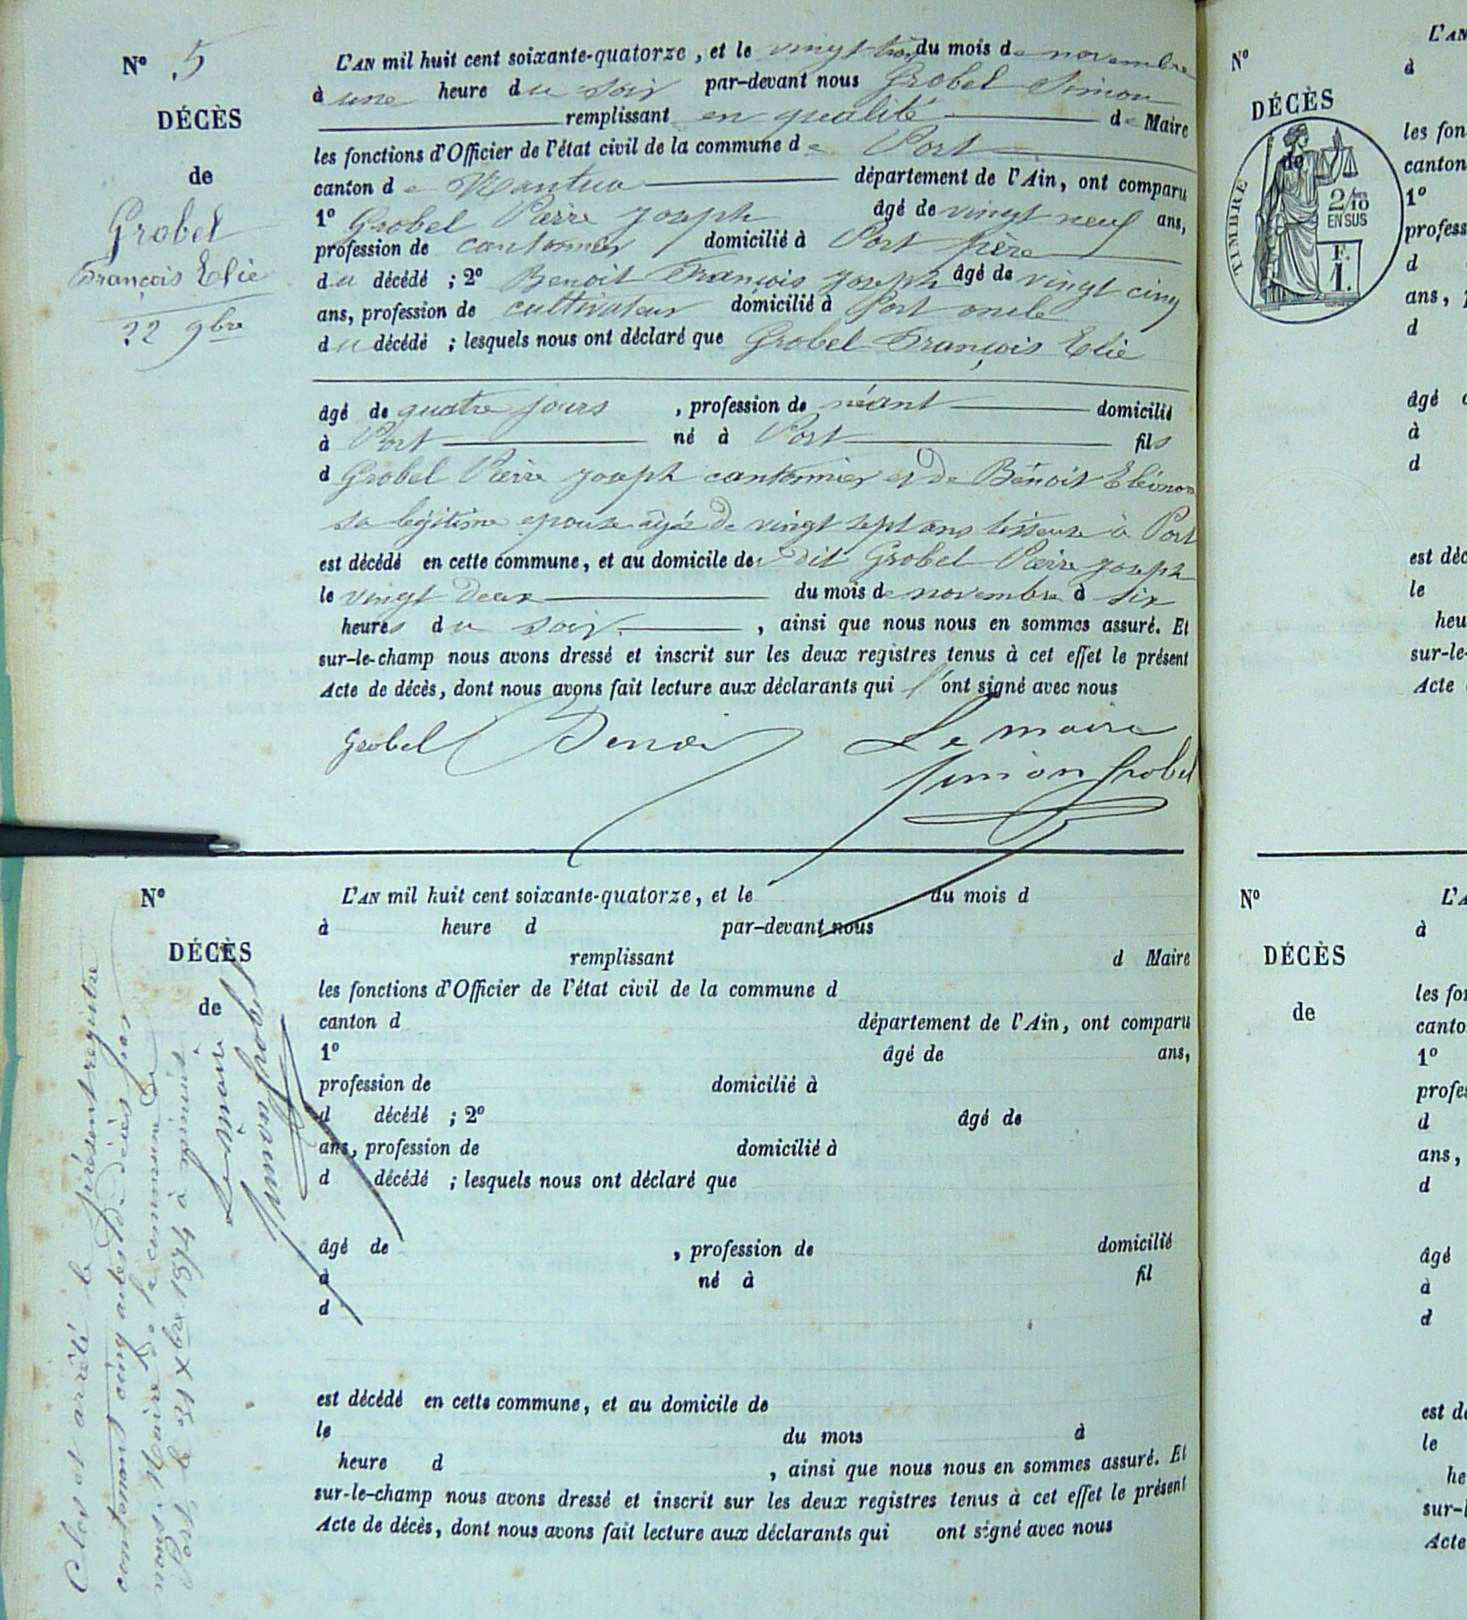 N° 5
DÉCÈS
de
Grobel
François Elie
22 9bre
L'AN mil huit cent soixante-quatorze, et le vingt trois du mois de novembre
à une heure du soir par-devant nous Grobel Simon
remplissant en qualité de Maire
les fonctions d'Officier de l'état civil de la commune de Port
canton de Nantua département de l'Ain, ont comparu
1° Grobel Pierre Joseph âgé de vingt neuf ans,
profession de cantonnier domicilié à Port père
du décédé ; 2° Benoit François Joseph âgé de vingt cinq
ans, profession de cultivateur domicilié à Port oncle
du décédé ; lesquels nous ont déclaré que Grobel François Elie
âgé de quatre jours , profession de néant domicilié
à Port né à Port fils
d Grobel Pierre Joseph cantonnier et de Benoit Eléonor
sa légitime epouse agée de vingt sept ans tisseuse à Port
est décédé en cette commune, et au domicile du dit Grobel Pierre Joseph
le vingt deux du mois de novembre à six
heures du soir , ainsi que nous nous en sommes assuré. Et
sur-le-champ nous avons dressé et inscrit sur les deux registres tenus à cet effet le présent
Acte de décès, dont nous avons fait lecture aux déclarants qui l'ont signé avec nous
Grobel Benoit Le maire
Simon Grobel
N°
DÉCÈS
de
L'AN mil huit cent soixante-quatorze, et le du mois d
à heure d par-devant nous
remplissant d Maire
les fonctions d'Officier de l'état civil de la commune d
canton d département de l'Ain, ont comparu
1° âgé de ans,
profession de domicilié à
d décédé ; 2° âgé de
ans, profession de domicilié à
d décédé ; lesquels nous ont déclaré que
âgé de , profession de domicilié
à né à fil
d
est décédé en cette commune, et au domicile de
le du mois à
heure d , ainsi que nous nous en sommes assuré. Et
sur-le-champ nous avons dressé et inscrit sur les deux registres tenus à cet effet le présent
Acte de décès, dont nous avons fait lecture aux déclarants qui ont signé avec nous
Clos et arrêté le présent registre
contenant cinq actes de décès par
nous Maire de la commune de
Port le 31 Xbre 1874 à minuit
Le maire
Simon Grobel
N°
DÉCÈS
de
TIMBRE
2/10
EN SUS
F.
1.
L'AN
à
les fon
canton
1°
profess
d
ans,
d
âgé
à
d
est déc
le
heu
sur-le-
Acte
N°
DÉCÈS
de
L'A
à
les fo
canto
1°
profes
d
ans,
d
âgé
à
d
est d
le
he
sur-l
Acte